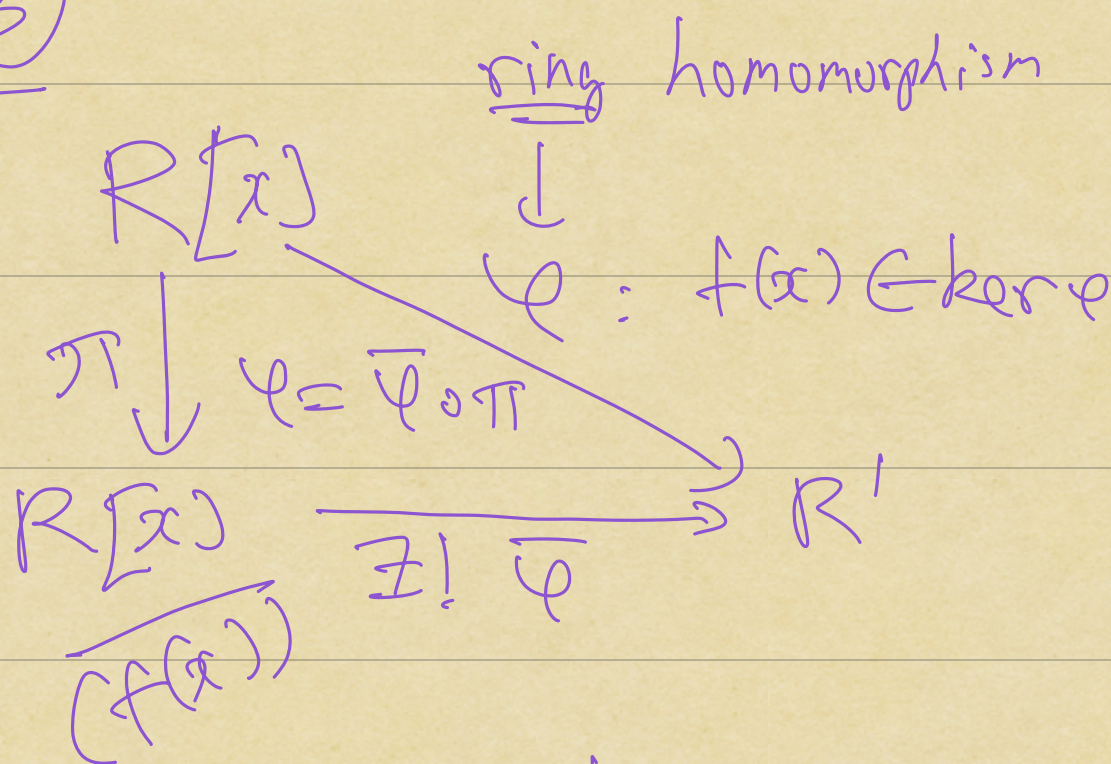 ②
ring homomorphism
R[x]
φ : f(x) ∈ ker φ
π φ = φ̄ ∘ π
R[x] R'
∃! φ̄
(f(x))